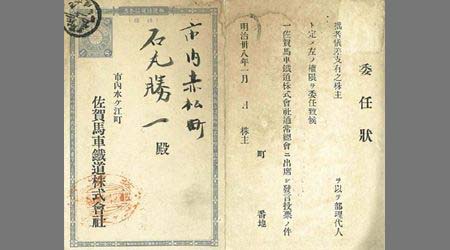 委任狀
拙者儀差支有之株主 ヲ以テ部理代人
ト定メ左ノ權限ヲ委任致候
一佐賀馬車鐵道株式會社通常總會ニ出席シ發言投票ノ件
町 番地
明治卅八年一月 日 株主
市内赤松町
石丸勝一殿
市内水ケ江町
佐賀馬車鐵道株式會社